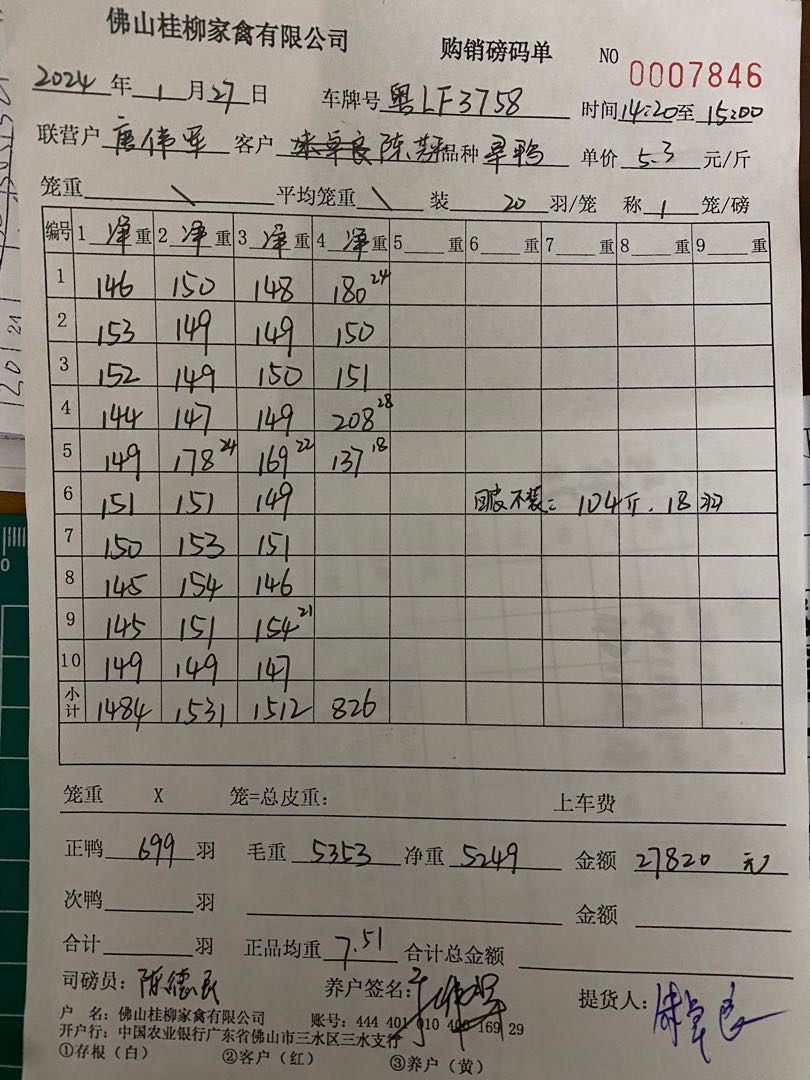 佛山桂柳家禽有限公司 购销磅码单 NO 0007846
2024年1月27日 车牌号 粤LF3758 时间14:20至15:00
联营户 唐伟军 客户 陈 品种 单价 5.3 元/斤
笼重 \ 平均笼重 \ 装 20 羽/笼 称 1 笼/磅
编号 1 净重 2 净重 3 净重 4 净重 5 重 6 重 7 重 8 重 9 重
1 146 150 148 180 24
2 153 149 149 150
3 152 149 150 151
4 144 147 149 208 28
5 149 178 24 169 22 137 18
6 151 151 149 回皮不装: 104斤. 18羽
7 150 153 151
8 145 154 146
9 145 151 154 21
10 149 149 147
小计 1484 1531 1512 826
笼重 X 笼=总皮重: 上车费
正鸭 699 羽 毛重 5353 净重 5249 金额 27820 元
次鸭 羽 金额
合计 羽 正品均重 7.51 合计总金额
司磅员: 陈德民 养户签名: 提货人:
户 名: 佛山桂柳家禽有限公司 账号: 444 401 010 400 169 29
开户行: 中国农业银行广东省佛山市三水区三水支行
①存根(白) ②客户(红) ③养户(黄)